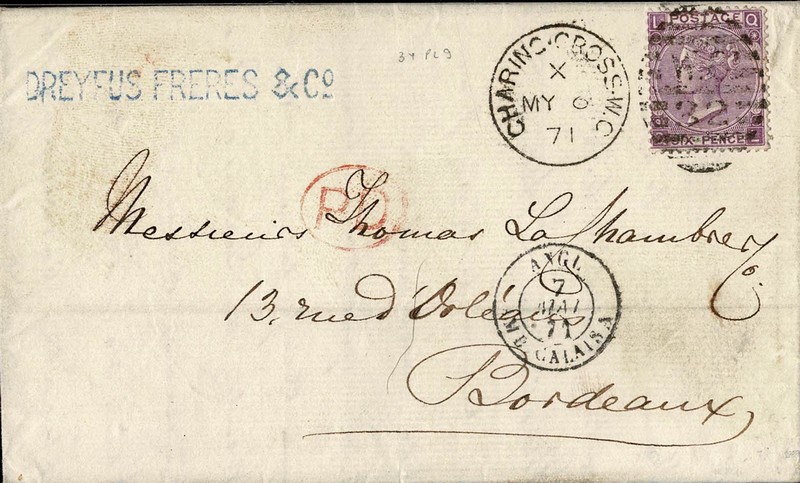 34 PL9
DREYFUS FRERES & Co
CHARING·CROSS.W.C
X
MY 6
71
L POSTAGE Q
SIX PENCE
P.D.
Messieurs Thomas La Chambre & Co.
13, rue d'Orléans
Bordeaux
ANGL.
7
MAI
71
CALAIS A